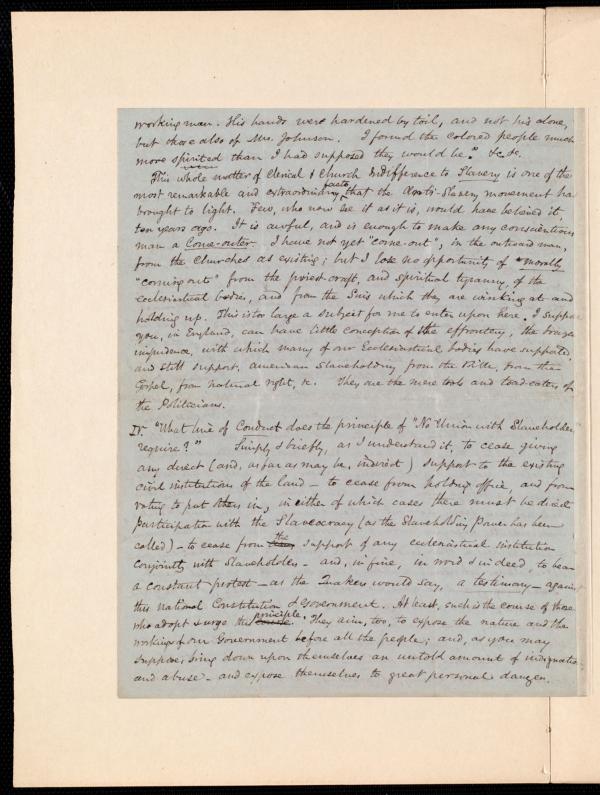 working man. His hands were hardened by toil, and not his alone,
but those also of Mrs. Johnson. I found the colored people much
more spirited than I had supposed they would be." &c. &c.
This whole matter of Clerical & Church Indifference to Slavery is one of the
most remarkable and extraordinary facts, that the Anti-Slavery movement has
brought to light. Few, who now see it as it is, would have believed it,
ten years ago. It is awful, and is enough to make any conscientious
man a Come-outer. I have not yet "come-out", in the outward man,
from the Churches as existing; but I lose no opportunity of "morally
"coming out" from the priest-craft, and spiritual tyranny, of the
ecclesiastical bodies, and from the Sins which they are winking at and
holding up. This is too large a subject for me to enter upon here. I suppose
you, in England, can have little conception of the effrontery, the brazen
impudence, with which many of our Ecclesiastical bodies have supported,
and still support, American Slaveholding from the Bible, from the
Gospel, from natural right, &c. They are the mere tools and toad-eaters of
the Politicians.
"What line of Conduct does the principle of "No Union with Slaveholders
require?" Simply & briefly, as I understand it, to cease giving
any direct (and, as far as may be, indirect) support to the existing
civil institutions of the land – to cease from holding office, and from
voting to put others in, in either of which cases there must be direct
participation with the Slaveocracy (as the Slaveholding Power has been
called) – to cease from the support of any ecclesiastical institution
conjointly with Slaveholders – and, in fine, in word & indeed, to bear
a constant protest – as the Quakers would say, a testimony – against
this national Constitution & Government. At least, such is the course of those
who adopt & urge the principle. They aim, too, to expose the nature and the
workings of our Government before all the people; and, as you may
suppose, bring down upon themselves an untold amount of indignation
and abuse – and expose themselves to great personal danger.